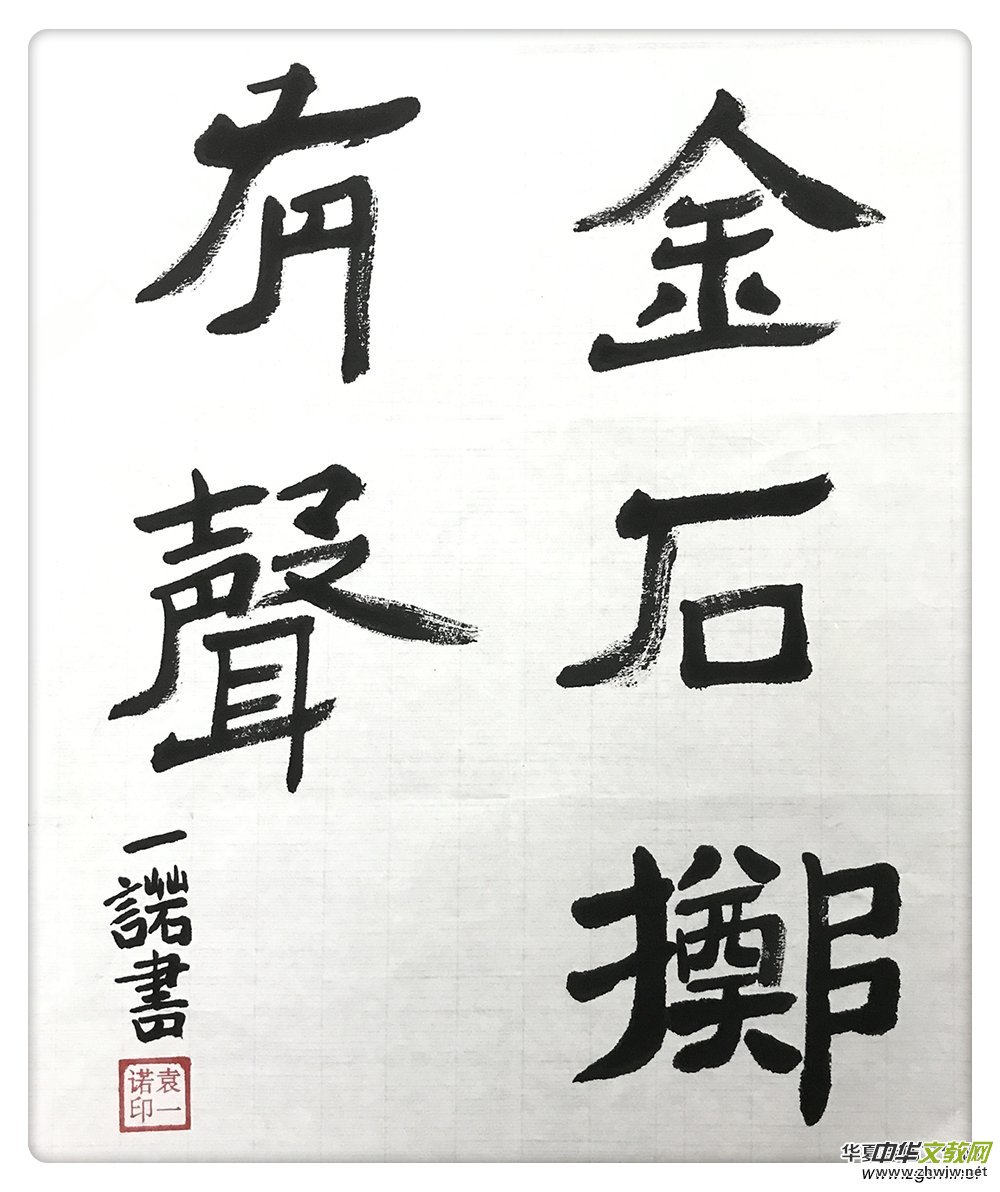 金石擲
有聲
一諾書
袁一诺印
中华文教网
www.zhwjw.net